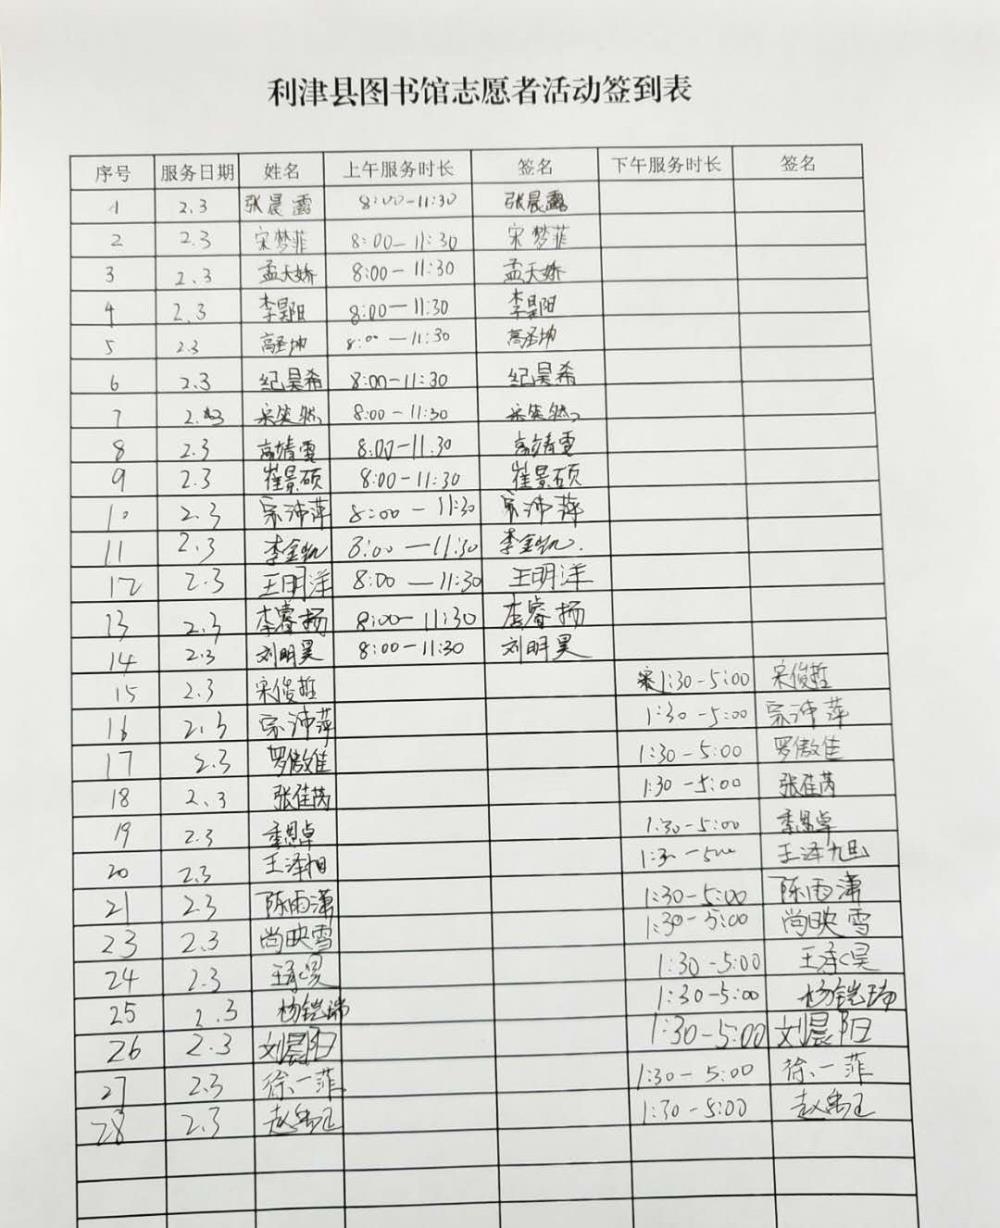 利津县图书馆志愿者活动签到表
序号 服务日期 姓名 上午服务时长 签名 下午服务时长 签名
1 2.3 张晨露 8:00-11:30 张晨露
2 2.3 宋梦菲 8:00-11:30 宋梦菲
3 2.3 孟天娇 8:00-11:30 孟天娇
4 2.3 李昊阳 8:00-11:30 李昊阳
5 2.3 高圣坤 8:00-11:30 高圣坤
6 2.3 纪昊希 8:00-11:30 纪昊希
7 2.3 8:00-11:30
8 2.3 高靖雯 8:00-11:30 高靖雯
9 2.3 崔景硕 8:00-11:30 崔景硕
10 2.3 宗沛萍 8:00-11:30 宗沛萍
11 2.3 李金凯 8:00-11:30 李金凯
12 2.3 王明洋 8:00-11:30 王明洋
13 2.3 李睿扬 8:00-11:30 李睿扬
14 2.3 刘明昊 8:00-11:30 刘明昊
15 2.3 宋俊哲 1:30-5:00 宋俊哲
16 2.3 宗沛萍 1:30-5:00 宗沛萍
17 2.3 罗傲佳 1:30-5:00 罗傲佳
18 2.3 张佳芮 1:30-5:00 张佳芮
19 2.3 季思卓 1:30-5:00 季思卓
20 2.3 王泽旭 1:30-5:00 王泽旭
21 2.3 陈雨潇 1:30-5:00 陈雨潇
23 2.3 尚映雪 1:30-5:00 尚映雪
24 2.3 王承昊 1:30-5:00 王承昊
25 2.3 杨铠瑞 1:30-5:00 杨铠瑞
26 2.3 刘晨阳 1:30-5:00 刘晨阳
27 2.3 徐一菲 1:30-5:00 徐一菲
28 2.3 1:30-5:00